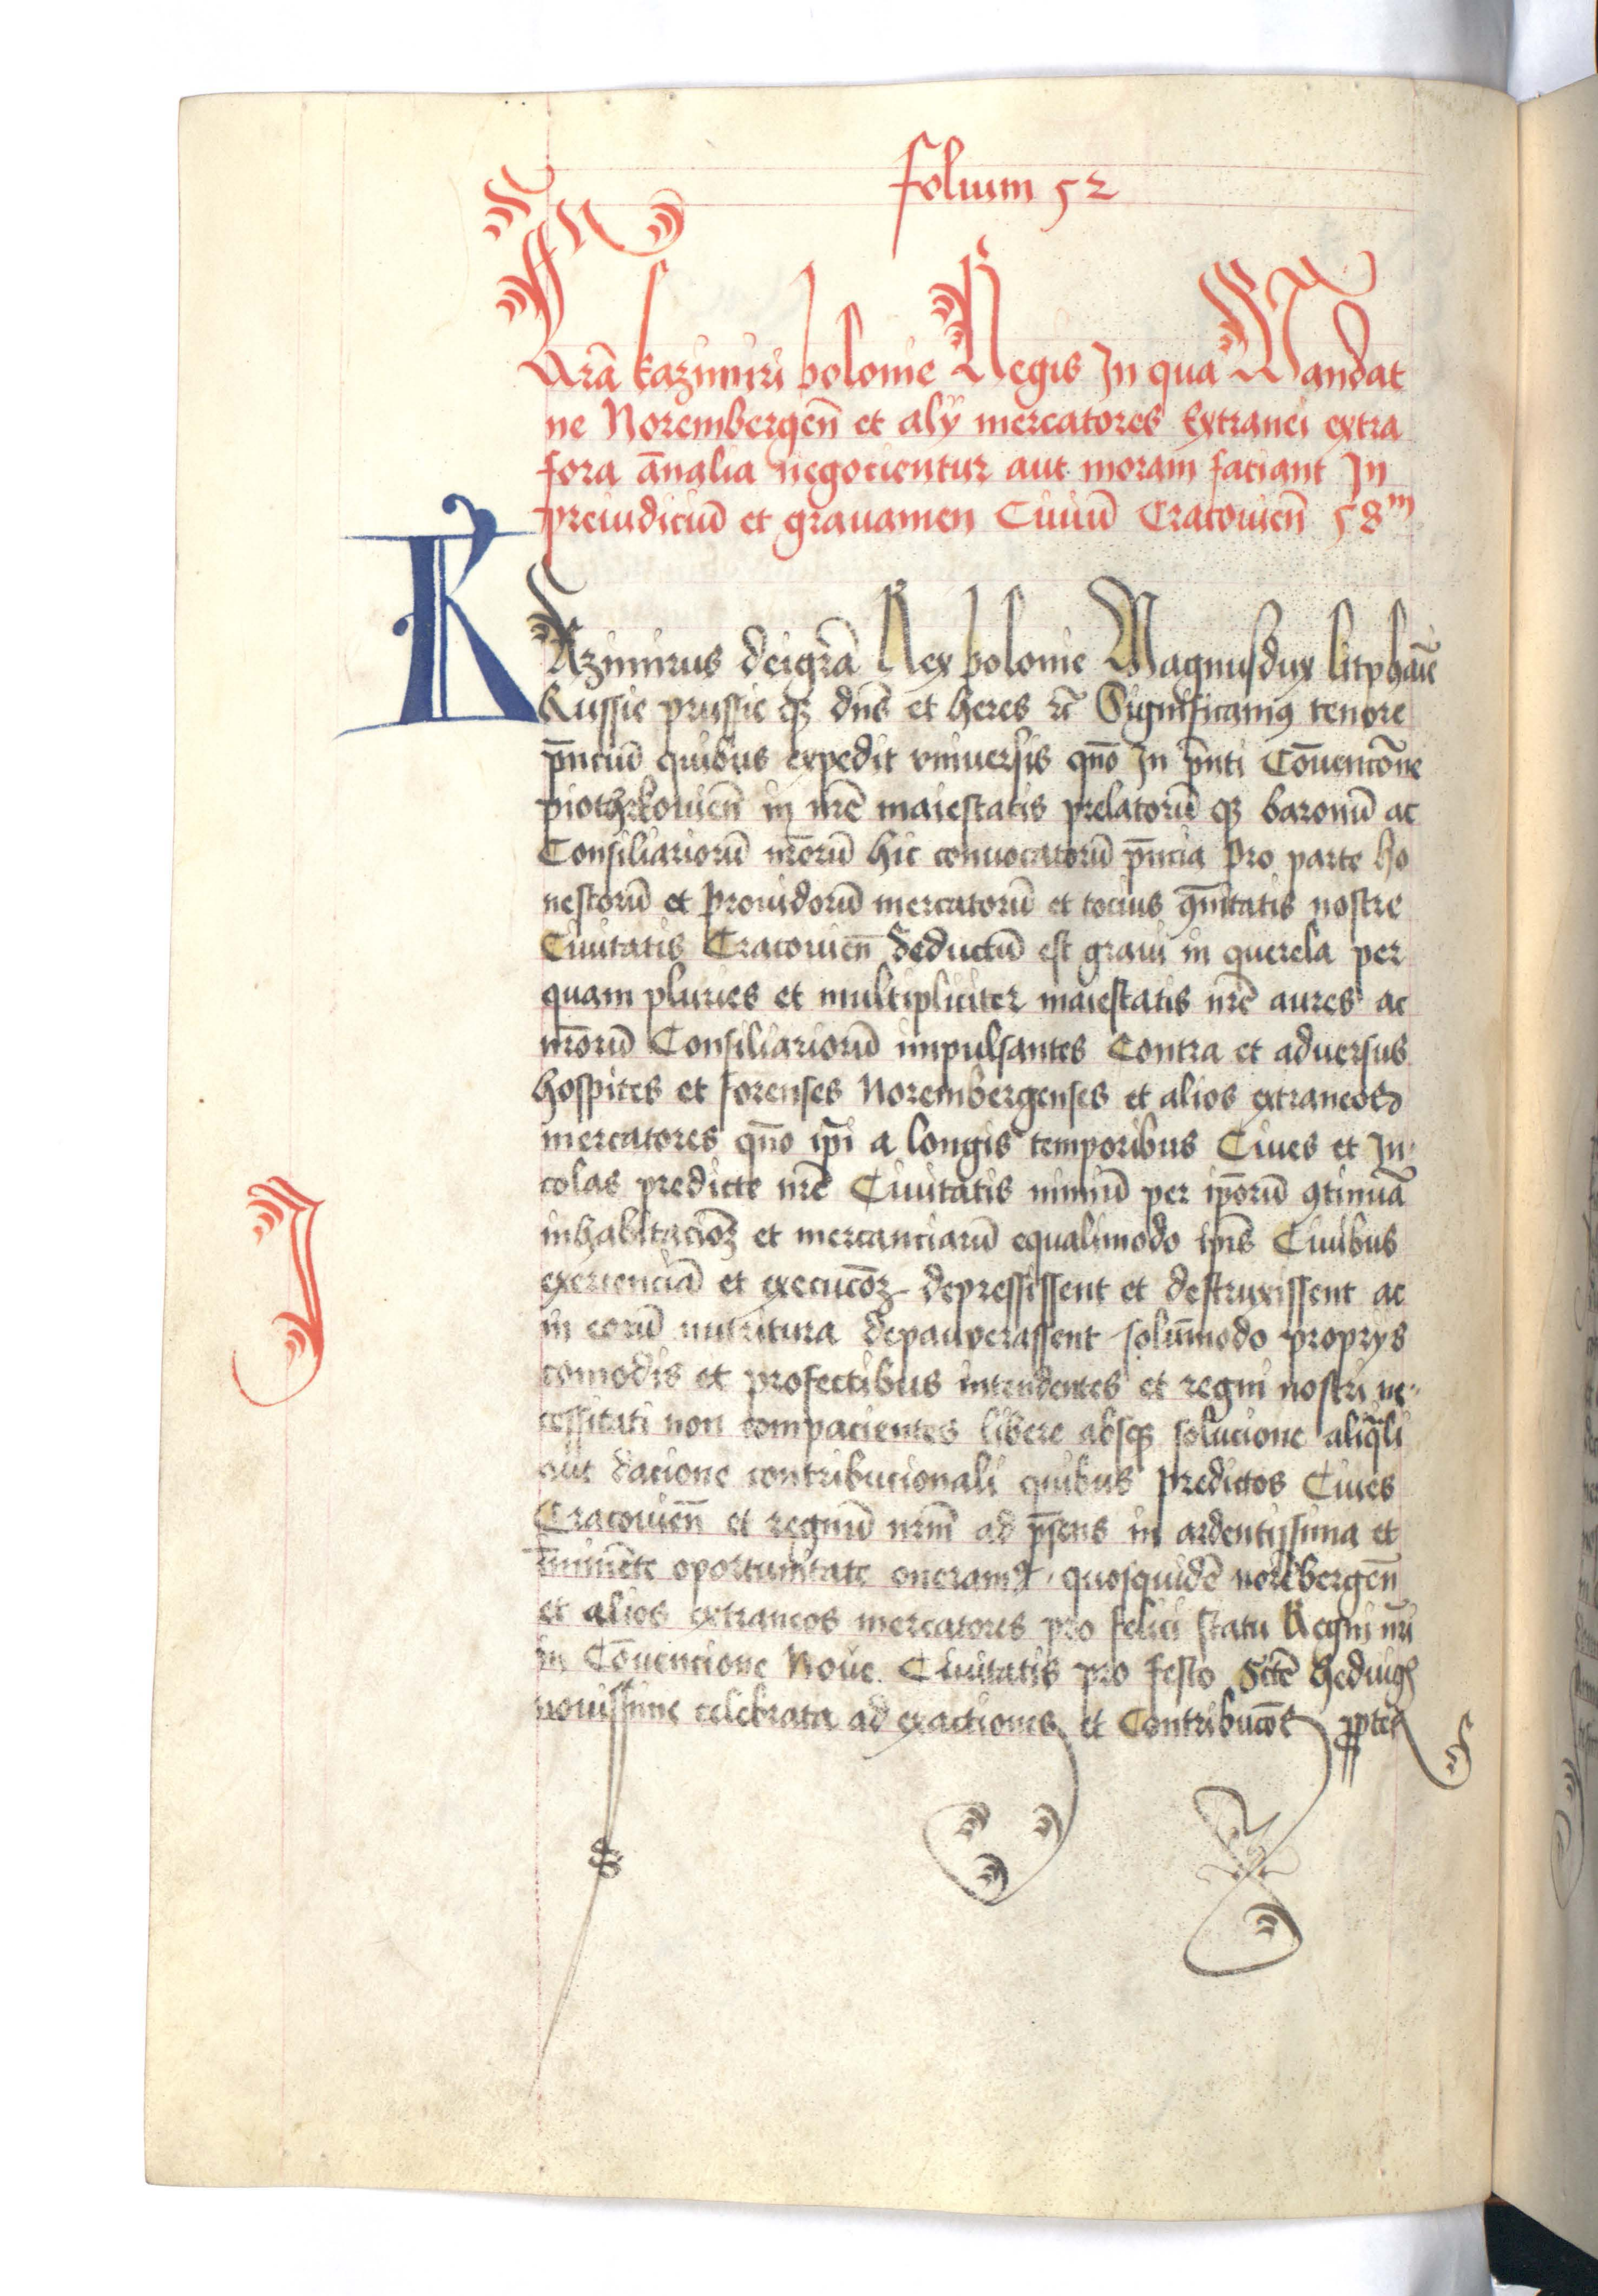 folium 52
Lr̃a kazimiri polonie Regis In qua Mandat
ne Norembergeñ et alÿ mercatores Extranei extra
fora ãnalia negocientur aut moram faciant In
preiudiciũ et grauamen Ciuiũ Cracouieñ 58m
KAzimirus deigrã Rex polonie Magnusdux litphanie
Russie prussie qȝ dñs et heres rc̃ Significamꝰ tenore
p̃nciũ quibus expedit vniuersis quõ In p̃nti Cõuencõne
piothrkouieñ in nr̃e maiestatis prelatorũ qȝ baronũ ac
Consiliariorũ nr̃orũ hic conuocatorũ p̃ncia pro parte ho
nestorũ et prouidorũ mercatorũ et tocius ꝯmitatis nostre
Ciuitatis Cracouieñ deductũ est graui in querela per
quam pluries et multipliciter maiestatis nr̃e aures ac
nr̃orũ Consiliariorũ impulsantes Contra et aduersus
hospites et forenses Norembergenses et alios extraneos
mercatores quõ ip̃i a longis temporibus Ciues et In
colas predicte nr̃e Ciuitatis nimiũ per ip̃orũ ꝯtinuã
inhabitacioȝ et mercanciarũ equalimodo ip̃is Ciuibus
exercenciã et execucõȝ depressissent et destruxissent ac
in eorũ nutritura depauperassent solũmodo proprÿs
comodis et profectibus intendentes et regni nostri ne
cessitati non compacientes libere absqȝ solucione aliq̃li
aut dacione contribucionali quibus predictos Ciues
Cracouieñ et regnũ nrm̃ ad p̃sens in ardentissima et
im̃inẽte oportunitate oneramꝰ quosquidẽ norẽbergeñ
et alios extraneos mercatores pro felici statu Regni nr̃i
in Cõuencione Noue Ciuitatis pro festo Sctẽ hedwigꝭ
nouissime celebrata ad exactiones et Contribucõe ꝓptes